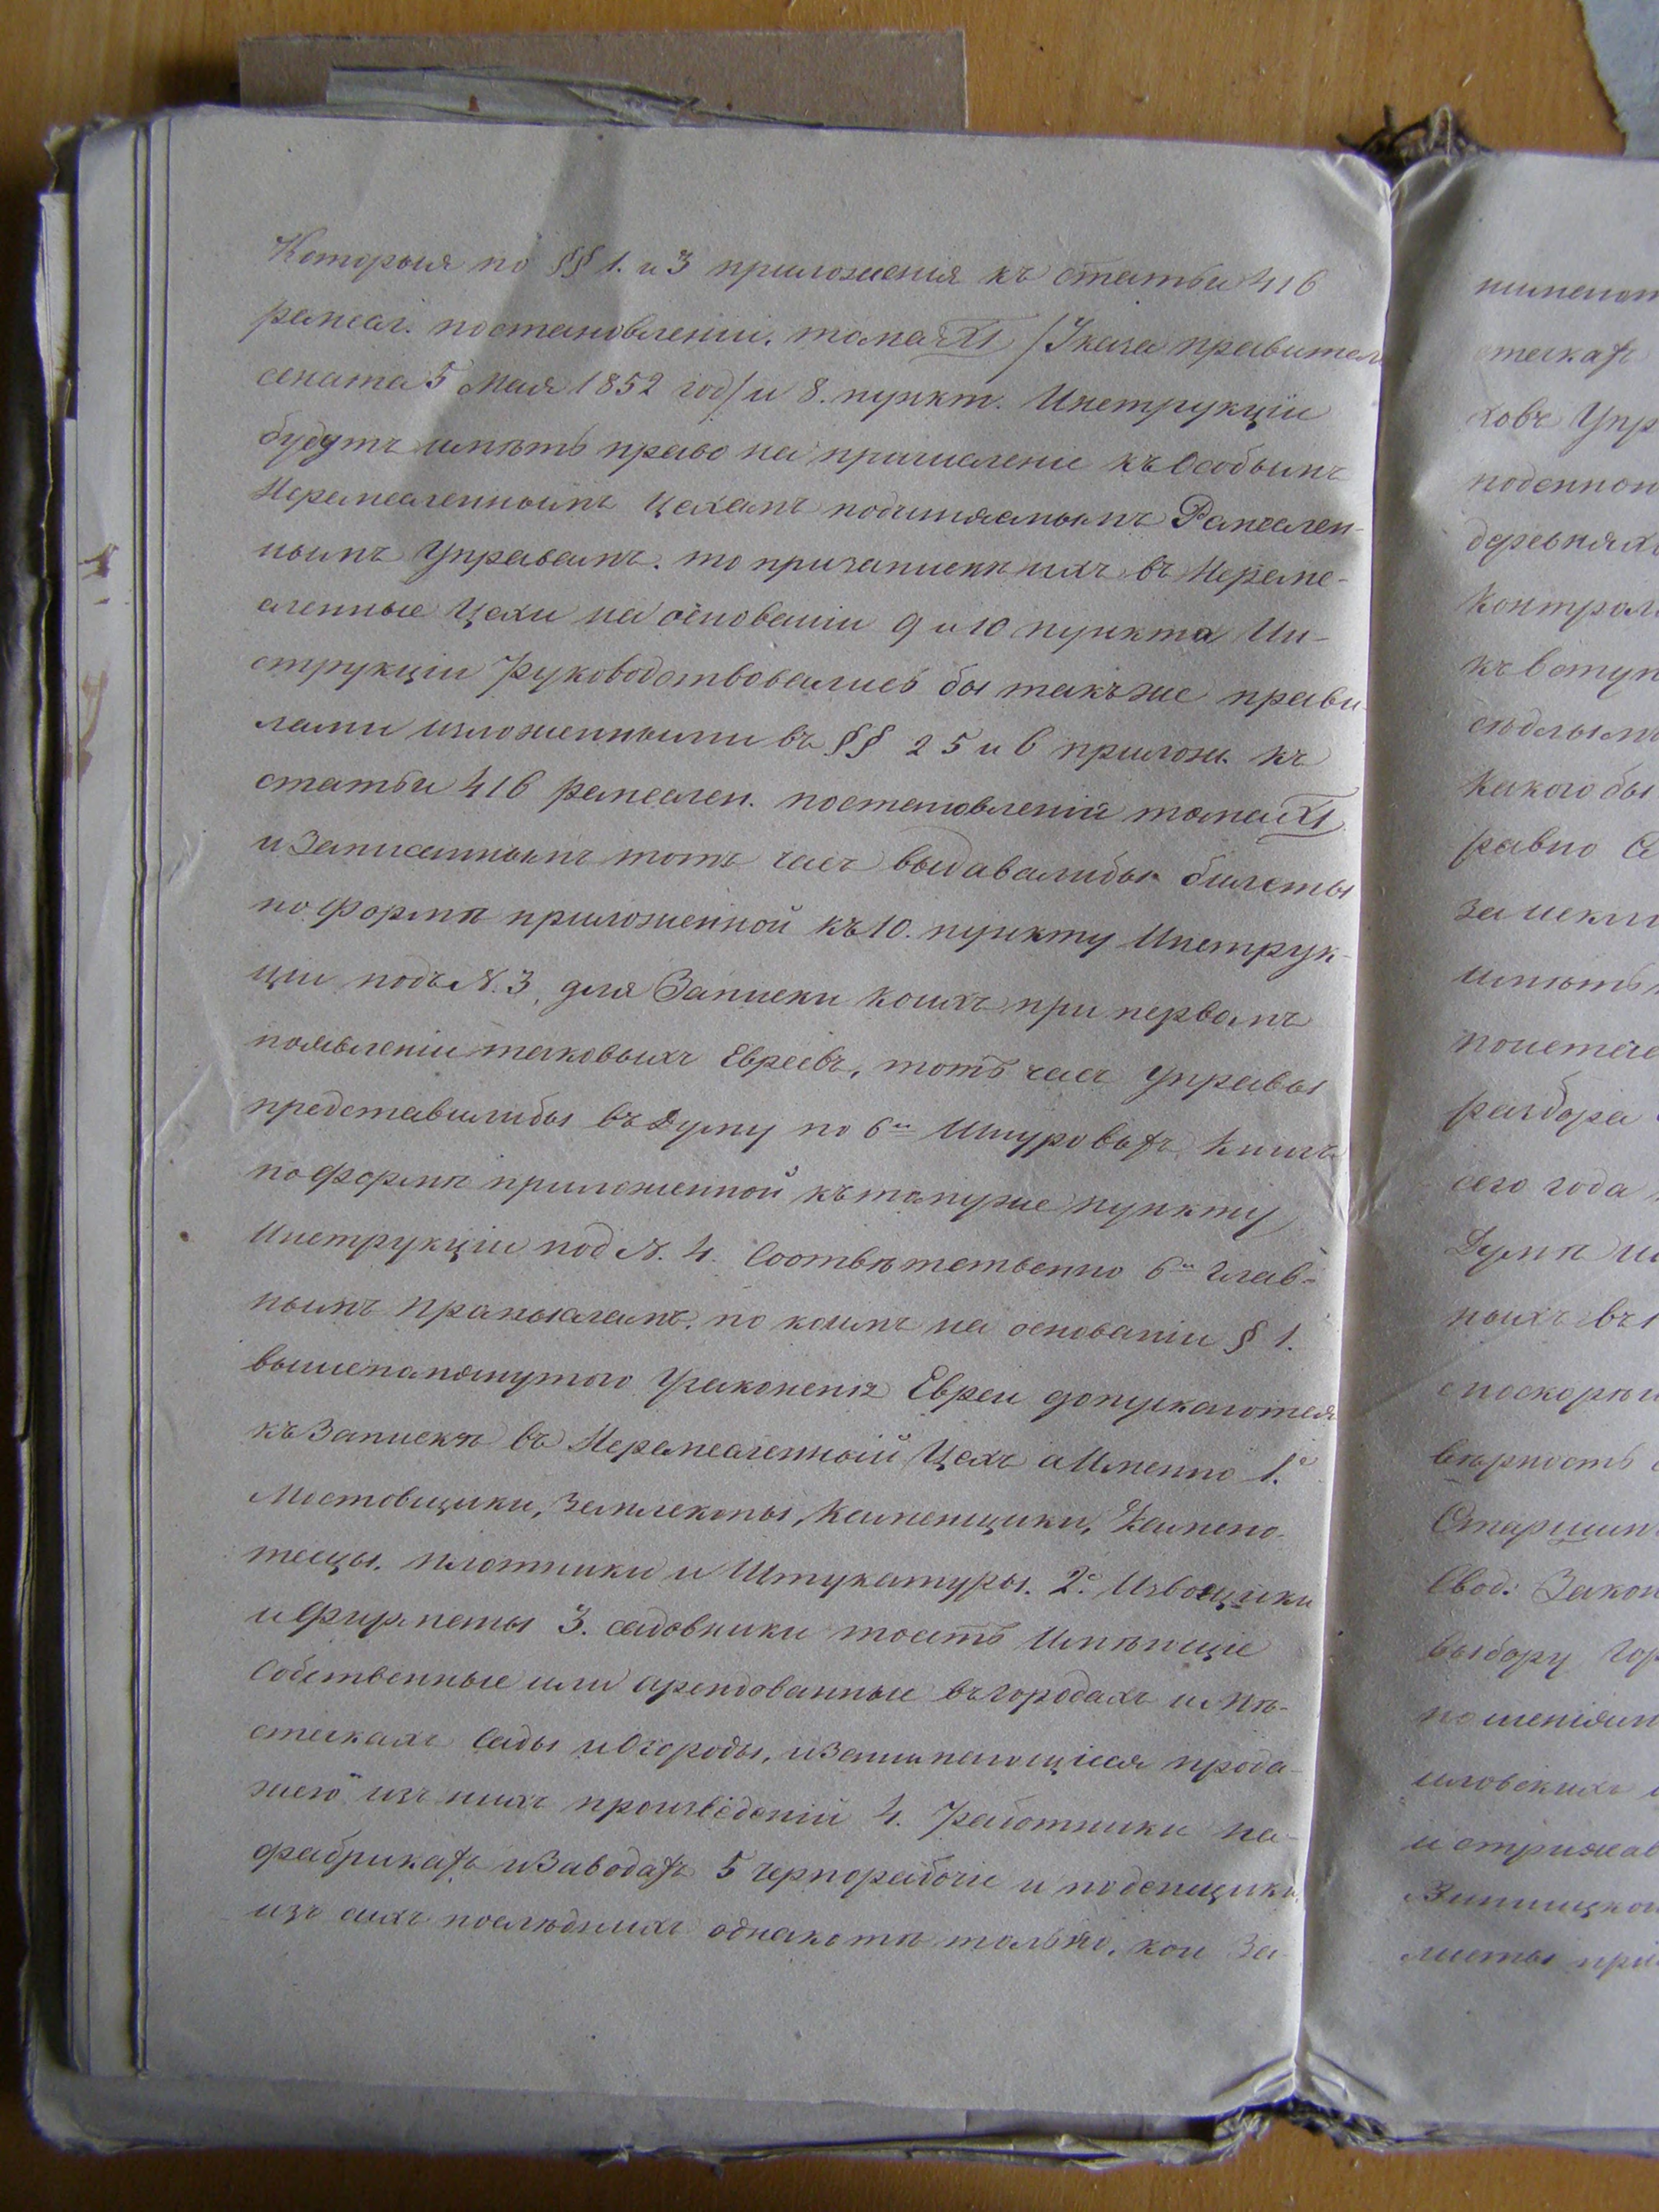 Которыя по §§ 1. и 3 приложенія къ статьи 416
ремесл. постановленій. тома XI /Указа правител
сената 5 Мая 1852 год/ и 8. пункт. Инструкціи
будутъ имѣть право на причисленіе къ Особымъ
Неремесленнымъ цехамъ подчиняемымъ Ремеслен-
нымъ Управамъ. то при записки ихъ въ Нереме-
сленные Цехи на основаніи 9 и 10 пункта Ин-
струкціи Руководствовались бы такъже прави
лами изложенными въ §§ 2 5 и 6 прилож. къ
статьи 416 ремеслен. постановленій тома XI
и Записаннымъ тотъ часъ выдавалибы билеты
по формѣ приложенной къ 10. пункту Инструк-
ціи подъ N. 3, для Записки коихъ при первомъ
появленіи таковыхъ Евреевъ, тотъ часъ управы
представилибы въ Думу по 6и Шнуровыхъ книгъ
по формѣ приложенной къ томуже пункту
Инструкціи под N. 4. Соотвѣтственно 6и Глав-
нымъ промысламъ. по коимъ на основаніи § 1.
вышепомянутого Узаконенія Евреи допускаются
къ Записки въ Неремесленный Цехъ а Именно 1.е
Мостовщики, Землекопы, Каменщики, Камено-
тесцы. плотники и Штукатуры. 2.е Извощики
и Фурманы 3. садовники тоесть Имѣющіе
Собственные или арендованные въ городахъ и мѣ-
стечкахъ Сады и Огороды, и Занимающіеся прода-
жею изъ нихъ произведеній 4. Работники на
фабрикахъ и Заводахъ 5 чернорабочіе и поденщики,
изъ сихъ послѣднихъ однако тѣ только, кои За-
стечкахъ
ховъ Упр
деревняхъ
Контрол
къ вступ
какого бы
равно
имѣть
разбора
сего года
Думѣ
ныхъ въ
вѣрность
Свод: Закон
выбору Гор
листы при